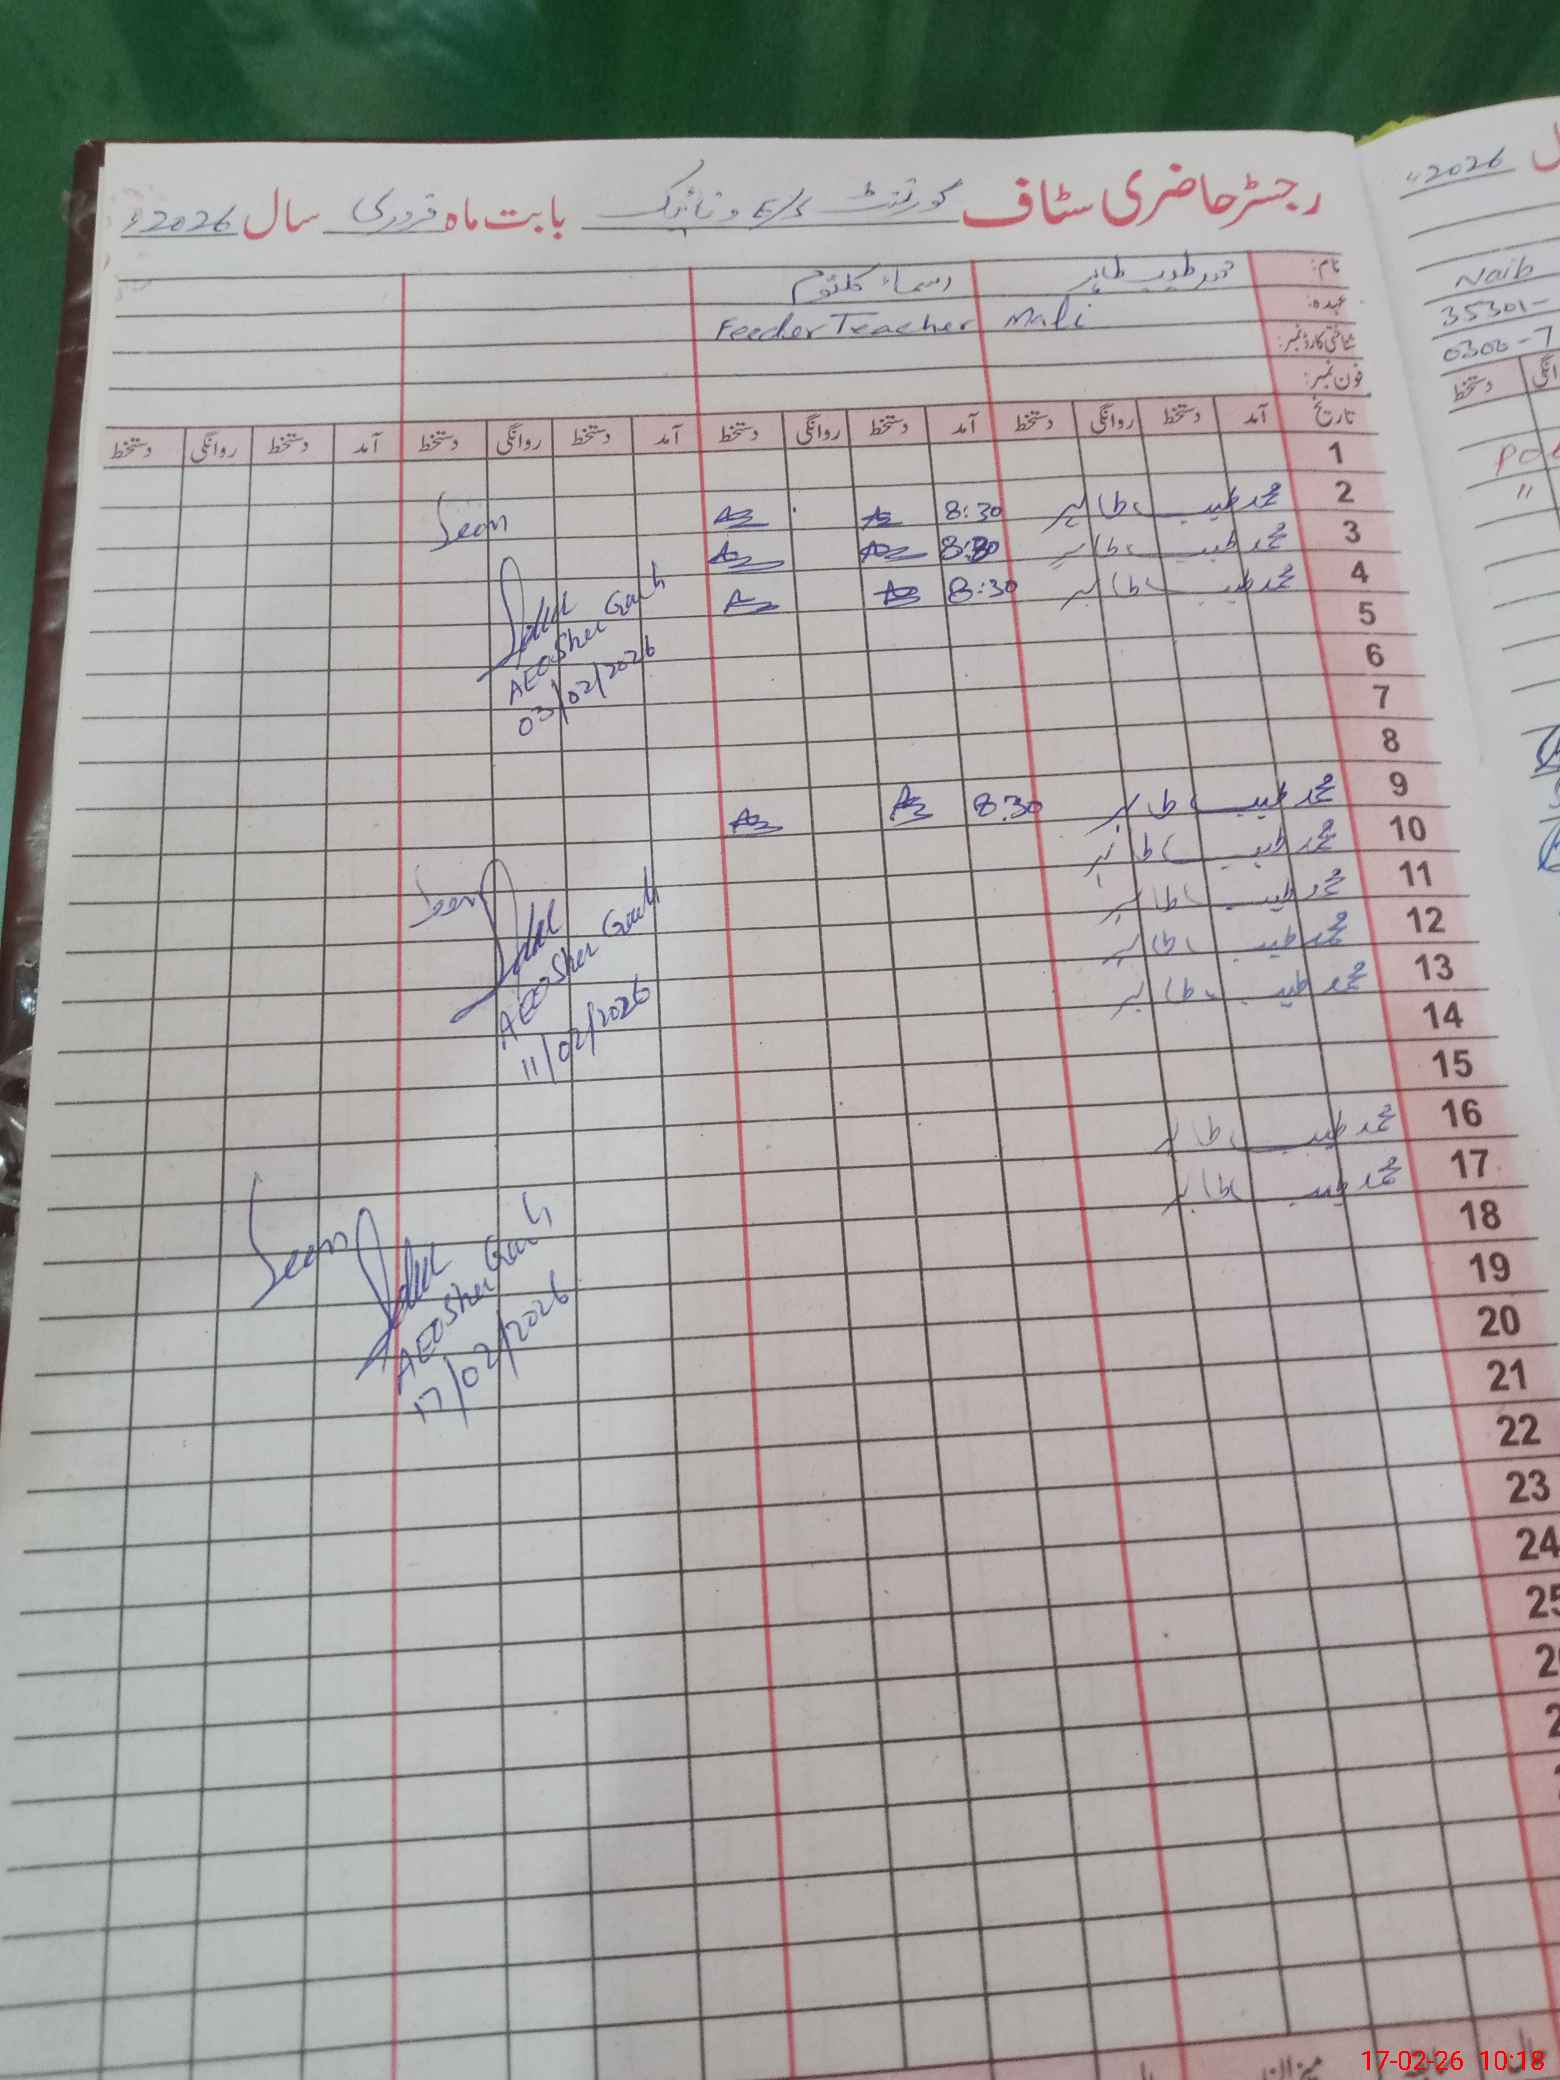 رجسٹر حاضری سٹاف گورنمنٹ E/S بابت ماہ فروری سال 2026ء
نام: محمد طیب طاہر اسماء کلثوم
عہدہ: Mali Feeder Teacher
شناختی کارڈ نمبر:
فون نمبر:
تاریخ آمد دستخط روانگی دستخط آمد دستخط روانگی دستخط آمد دستخط روانگی دستخط آمد دستخط روانگی دستخط
1
2 محمد طیب طاہر 8:30
Seen
3 محمد طیب طاہر 8:30
4 محمد طیب طاہر 8:30
AEO Sher Garh
03/02/2026
5
6
7
8
9 محمد طیب طاہر 8:30
10 محمد طیب طاہر
11 محمد طیب طاہر
Seen
AEO Sher Garh
11/02/2026
12 محمد طیب طاہر
13 محمد طیب طاہر
14
15
16 محمد طیب طاہر
17 محمد طیب طاہر
Seen
AEO Sher Garh
17/02/2026
18
19
20
21
22
23
24
25
2026
Naib
35301-
0300-7
دستخط
"
17-02-26 10:18